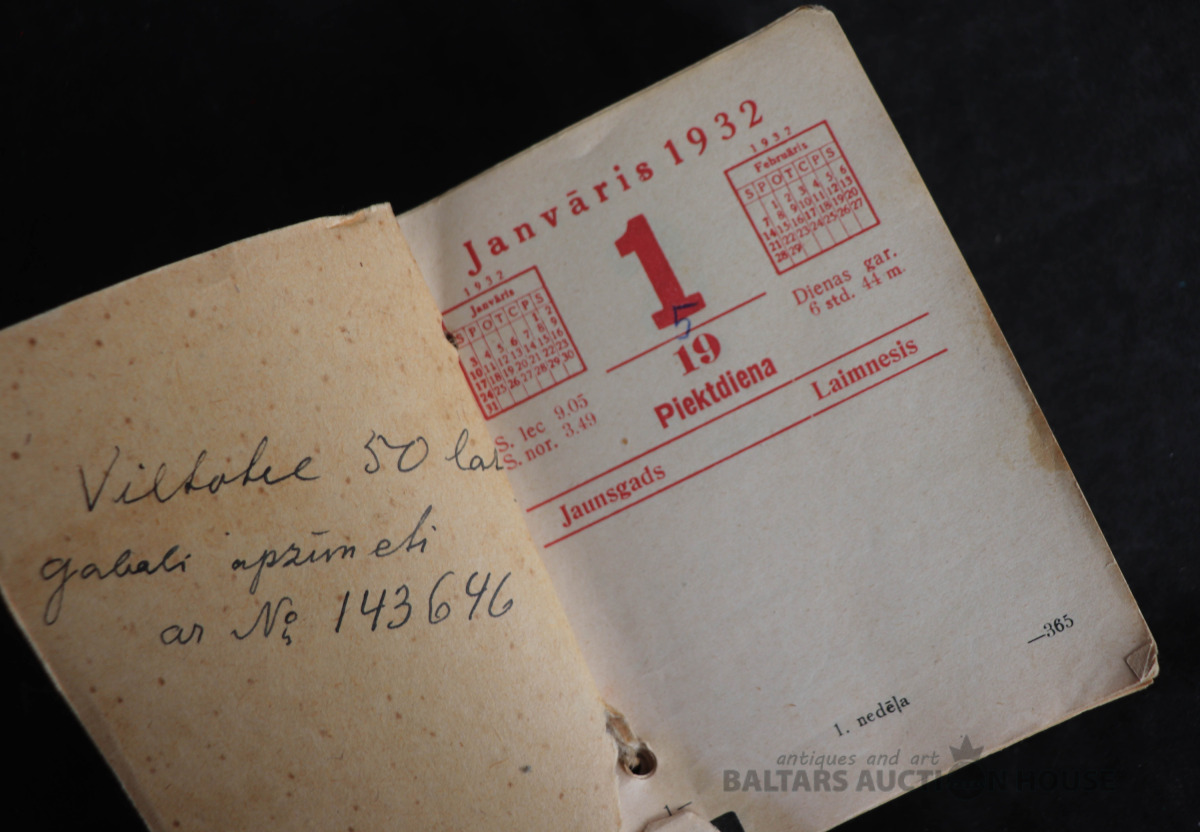 Viltotee 50 lat
gabali apzīmeti
ar No 143646
Janvāris 1932
1932
Janvāris
S P O T C P S
1 2
3 4 5 6 7 8 9
10 11 12 13 14 15 16
17 18 19 20 21 22 23
24 25 26 27 28 29 30
31
S. lec 9.05
S. nor. 3.49
1
5
19
Piektdiena
1932
Februāris
S P O T C P S
1 2 3 4 5 6
7 8 9 10 11 12 13
14 15 16 17 18 19 20
21 22 23 24 25 26 27
28 29
Dienas gar.
6 std. 44 m.
Jaunsgads Laimnesis
—365
1. nedēļa
antiques and art
BALTARS AUCTION HOUSE